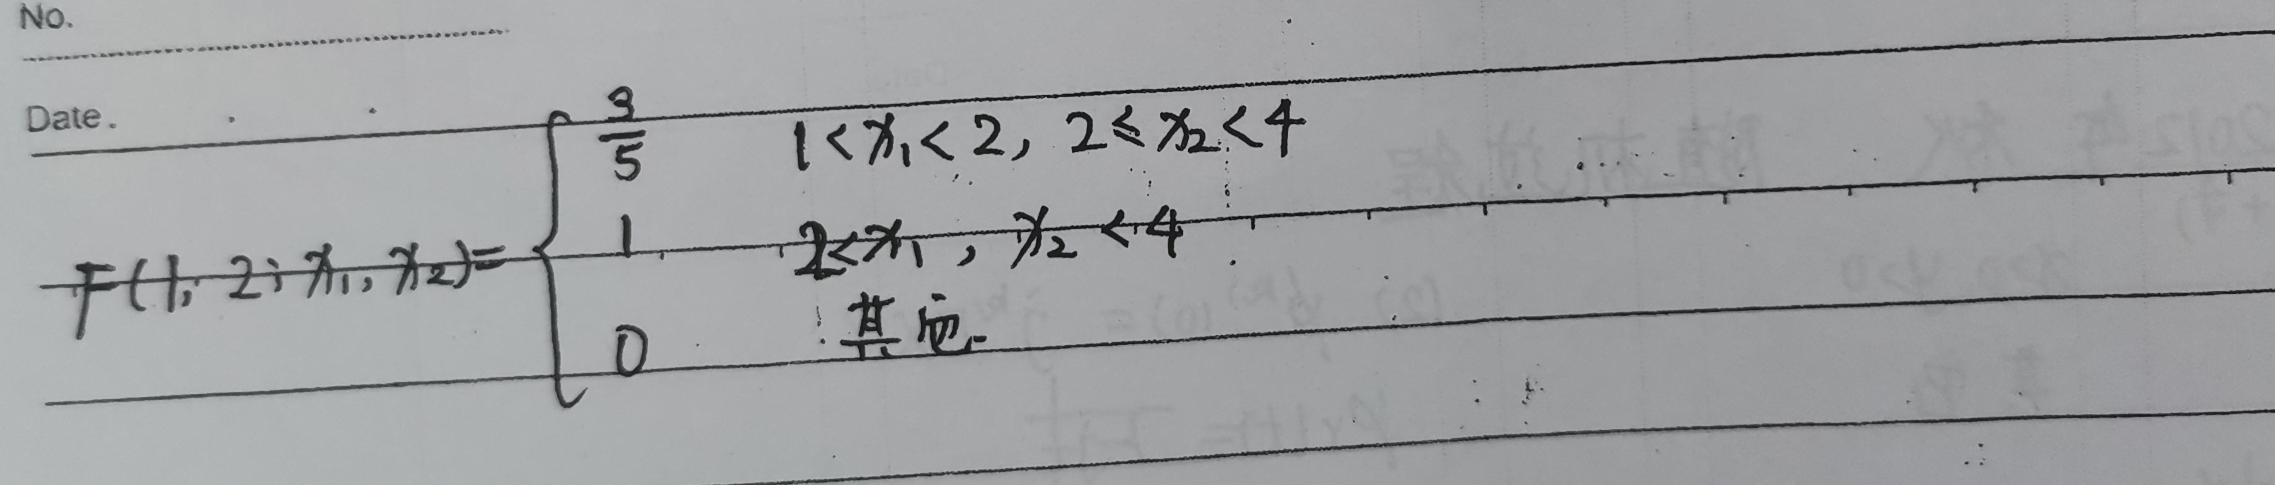 No.
Date.
F(1, 2; x₁, x₂) = { 3/5  1<x₁<2, 2≤x₂<4
1  2<x₁, x₂<4
0  其他.